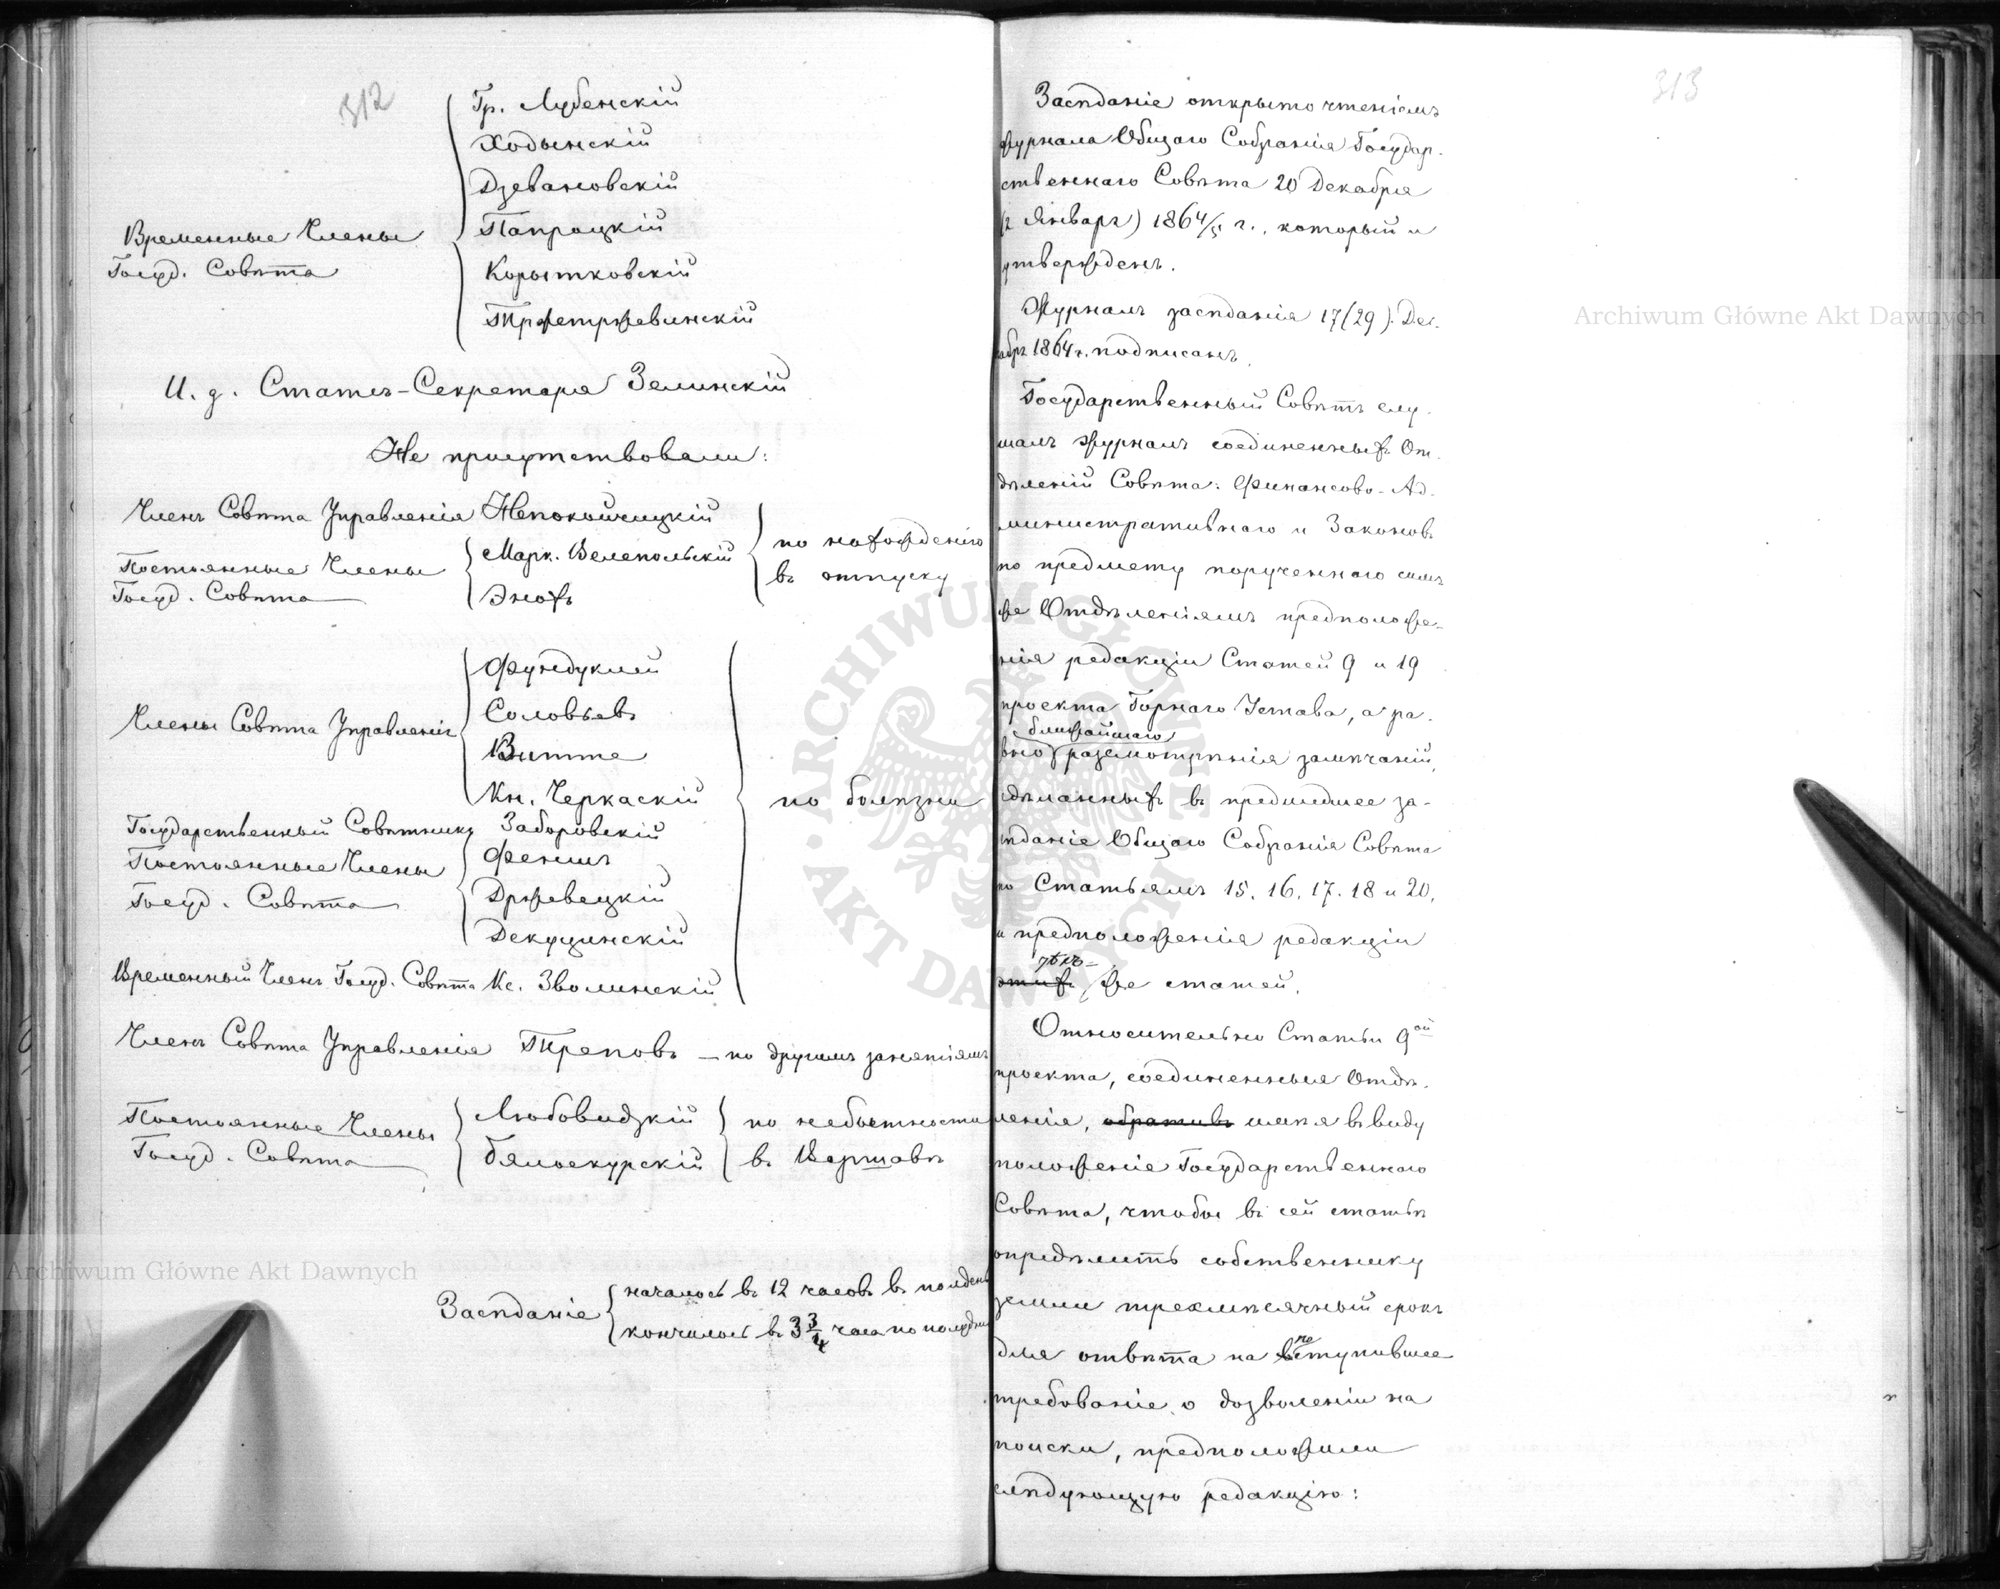 312
Гр. Лубенскій
Ходынскій
Дзевановскій
Временные Члены
Госуд. Совѣта
Папроцкій
Корытковскій
Тржетржевинскій
И. д. Статсъ-Секретаря Зелинскій
Не присутствовали:
Членъ Совѣта Управленія Непокойчицкій
Постоянные Члены
Госуд. Совѣта
Марк. Велепольскій
Энохъ
по нахожденію
въ отпуску
Члены Совѣта Управленія
Фундуклей
Соловьевъ
Витте
Кн. Черкаскій
Государственный Совѣтникъ Заборовскій
Постоянные Члены
Госуд. Совѣта
Феншъ
Држевецкій
Декуцинскій
Временный Членъ Госуд. Совѣта Кс. Зволинскій
по болѣзни
Членъ Совѣта Управленія Треповъ — по другимъ занятіямъ
Постоянные Члены
Госуд. Совѣта
Любовидзкій
Бялоскурскій
по небытности
въ Варшавѣ
Засѣданіе
началось въ 12 часовъ въ полдень
кончилось въ 3 3/4 часа по полудни
313
Засѣданіе открыто чтеніемъ
журнала Общаго Собранія Государ-
ственнаго Совѣта 20 Декабря
(1 Января) 1864/5 г., который и
утвержденъ.
Журналъ засѣданія 17(29) Де-
кабря 1864 г. подписанъ.
Государственный Совѣтъ слу-
шалъ журналъ соединенныхъ От-
дѣленій Совѣта: Финансово-Ад-
министративнаго и Законовъ
по предмету порученнаго симъ
же Отдѣленіямъ предположе-
нія редакціи Статей 9 и 19
проекта Горнаго Устава, а ра-
ближайшаго
вно разсмотрѣнія замѣчаній,
сдѣланныхъ въ предшедшее за-
сѣданіе Общаго Собранія Совѣта
по Статьямъ 15, 16, 17, 18 и 20,
и предположенія редакціи
тѣхъ-
этихъ же статей.
Относительно Статьи 9ой
проекта, соединенныя Отдѣ-
ленія, обративъ имѣя въ виду
положеніе Государственнаго
Совѣта, чтобы въ сей статьѣ
опредѣлить собственнику
земли трехмѣсячный срокъ
для отвѣта на поступившее
требованіе о дозволеніи на
поиски, предположили
слѣдующую редакцію:
Archiwum Główne Akt Dawnych
Archiwum Główne Akt Dawnych
ARCHIWUM GŁÓWNE
AKT DAWNYCH